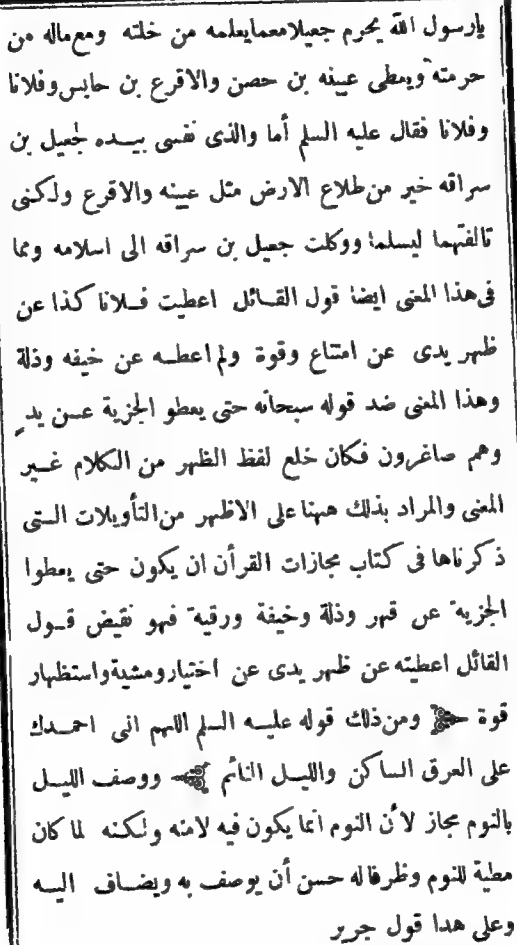 يارسول الله يحرم جعيلا معما يعلمه من خلته ومع ماله من
حرمته ويعطى عيينه بن حصن والاقرع بن حابس وفلانا
وفلانا فقال عليه السلم أما والذى نفسى بيـــده لجعيل بن
سراقه خير من طلاع الارض مثل عيينه والاقرع ولكنى
تالفتهما ليسلما ووكلت جعيل بن سراقه الى اسلامه ومما
فى هذا المعنى ايضا قول القـــائل اعطيت فـــلانا كذا عن
ظهر يدى عن امتناع وقوة ولم اعطــه عن خيفه وذلة
وهذا المعنى ضد قوله سبحانه حتى يعطو الجزية عـــن يدٍ
وهم صاغرون فكان خلع لفظ الظهر من الكلام غـــير
المعنى والمراد بذلك ههنا على الاظهر من التأويلات الـــتى
ذكرناها فى كتاب مجازات القرأن ان يكون حتى يعطوا
الجزية عن قهر وذلة وخيفة ورقبة فهو نقيض قـــول
القائل اعطيته عن ظهر يدى عن اختيار ومشية واستظهار
قوة ومن ذلك قوله عليـــه السلم اللهم انى احمـــدك
على العرق الساكن والليـــل النائم ووصف الليـــل
بالنوم مجاز لأن النوم انما يكون فيه لامنه ولكنه لما كان
مطية للنوم وظرفا له حسن أن يوصف به ويضـــاف اليـــه
وعلى هدا قول جرير